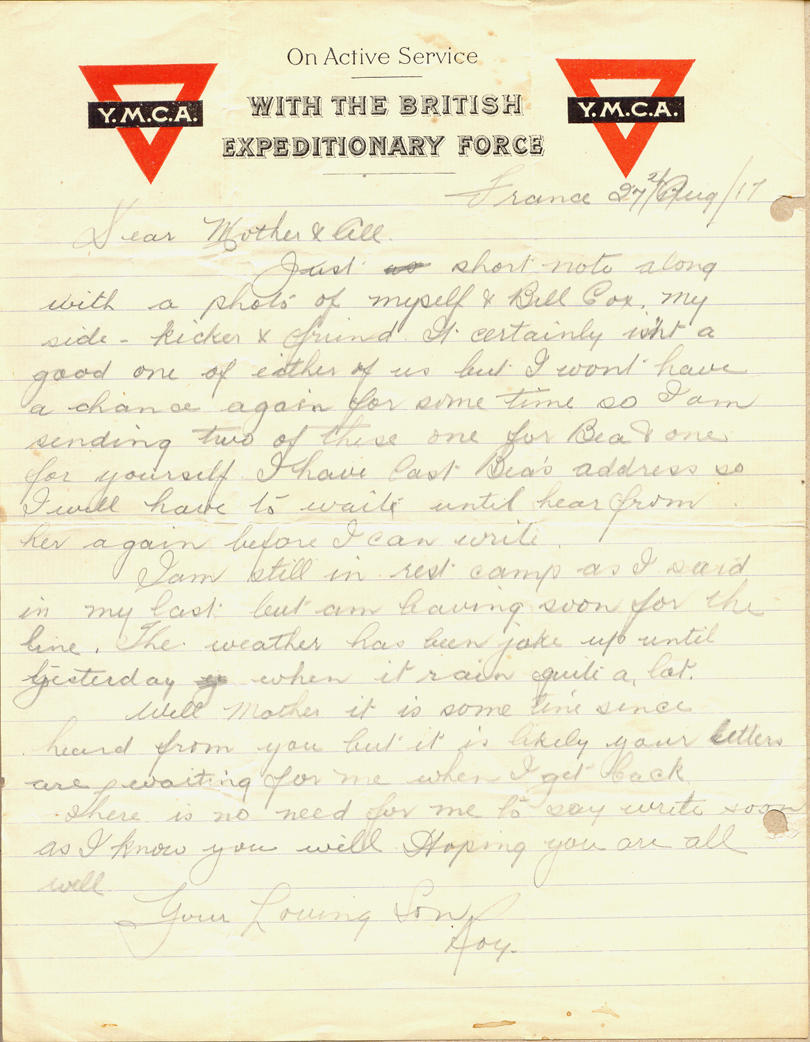 On Active Service
Y.M.C.A. Y.M.C.A.
WITH THE BRITISH
EXPEDITIONARY FORCE
France 27/Aug/17
Dear Mother & All.
Just as short note along
with a photo of myself & Bill Cox, my
side-kicker & friend. It certainly isn't a
good one of either of us but I wont have
a chance again for some time so I am
sending two of these one for Bea & one
for yourself. I have lost Bea's address so
I will have to wait until hear from
her again before I can write.
I am still in rest camp as I said
in my last but am leaving soon for the
line. The weather has been jake up until
yesterday when it rain quite a lot.
Well Mother it is some time since
heard from you but it is likely your letters
are waiting for me when I get back
there is no need for me to say write soon
as I know you will Hoping you are all
well
Your Loving Son
Roy.